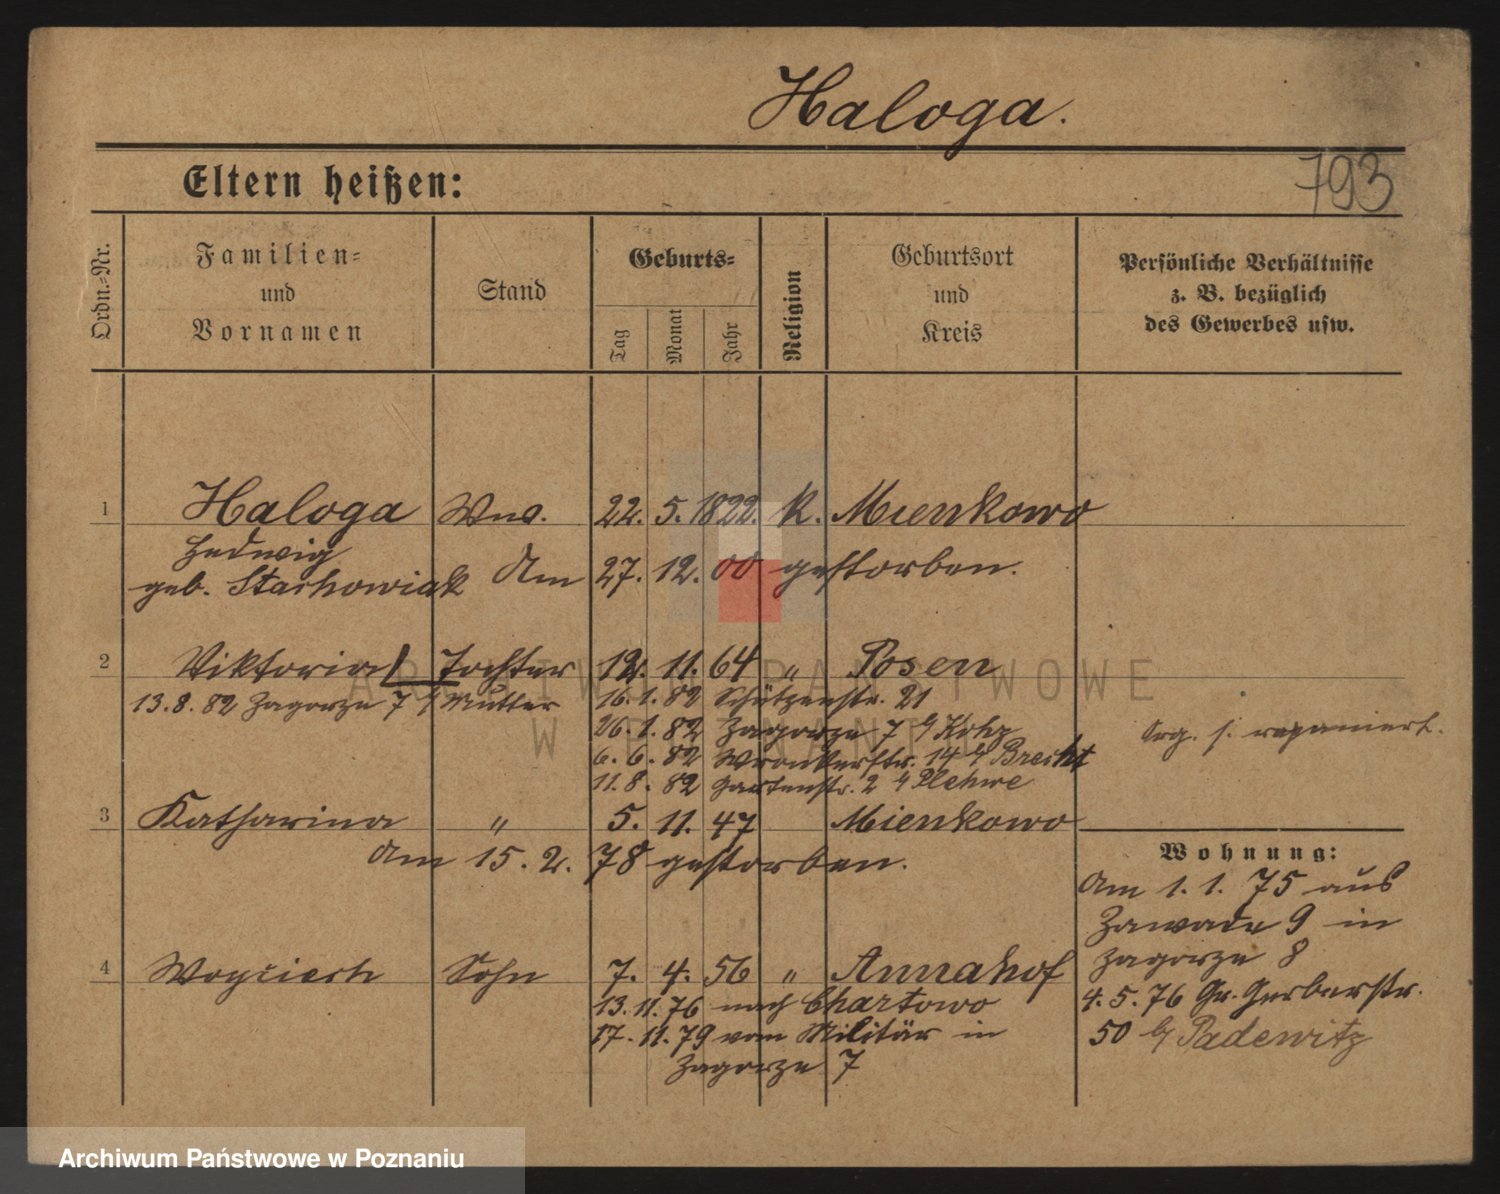 Haloga.
793
Eltern heißen:
Ordn.-Nr.
Familien-
und
Vornamen
Stand
Geburts-
Tag
Monat
Jahr
Religion
Geburtsort
und
Kreis
Persönliche Verhältnisse
z. B. bezüglich
des Gewerbes usw.
1 Haloga Wwe. 22. 5. 1822. k. Mienkowo
Hedwig
geb. Stachowiak Am 27. 12. 00 gestorben.
2 Viktoria Tochter 12. 11. 64 " Posen
13.8.82 Zagorze 7 Mutter 16.1.82 Schützenstr. 21
26.1.82 Zagorze 7
6.6.82 Wronkerstr. 14 Brecht
11.8.82 Gartenstr. 2 Plehwe
3 Katharina " 5. 11. 47 Mienkowo
Am 15. 2. 78 gestorben.
4 Woyciech Sohn 7. 4. 56 " Annahof
13.11.76 nach Chartowo
17.11.79 vom Militär in
Zagorze 7
Wohnung:
Am 1. 1. 75 aus
Zawade 9 in
Zagorze 8
4.5.76 Gr. Gerberstr.
50 b/ Padewitz
ARCHIWUM PAŃSTWOWE
W POZNANIU
Archiwum Państwowe w Poznaniu